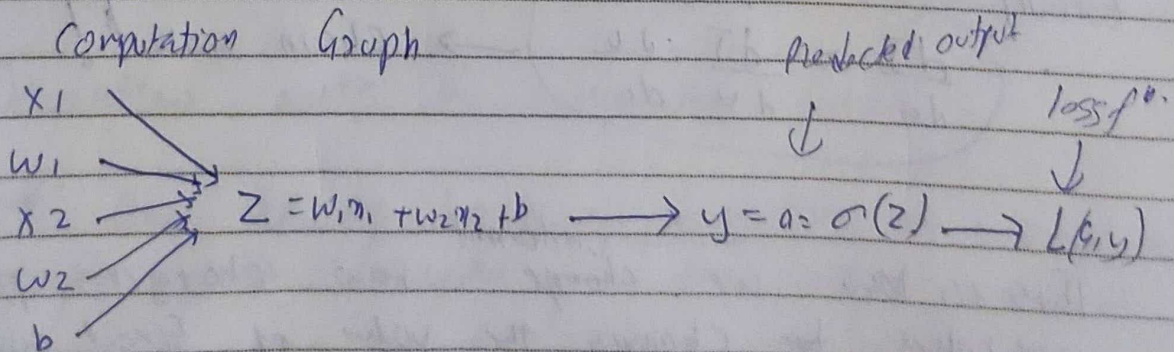 Computation Graph
Predicted output
loss fⁿ.
x1
w1
x2
w2
b
Z = w₁x₁ + w₂x₂ + b → y = a = σ(z) → L(a,y)